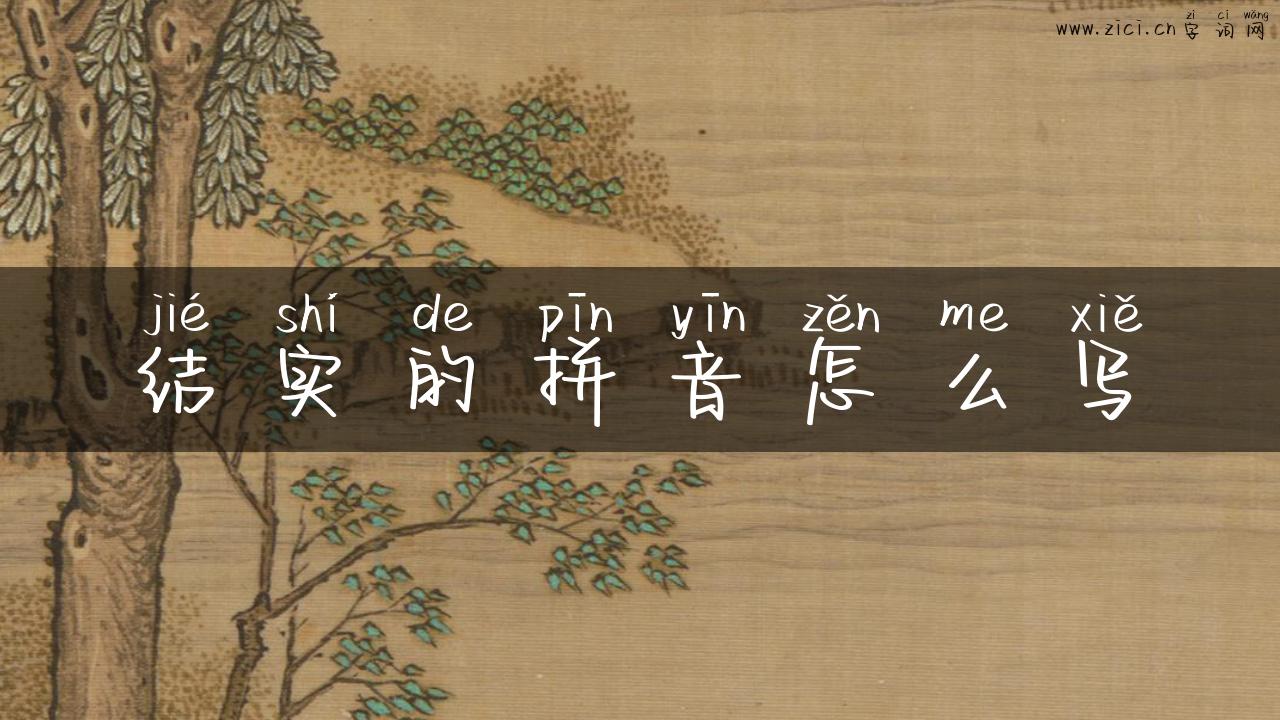 zì cí wǎng
www.zici.cn 字词网
jié shí de pīn yīn zěn me xiě
结实的拼音怎么写